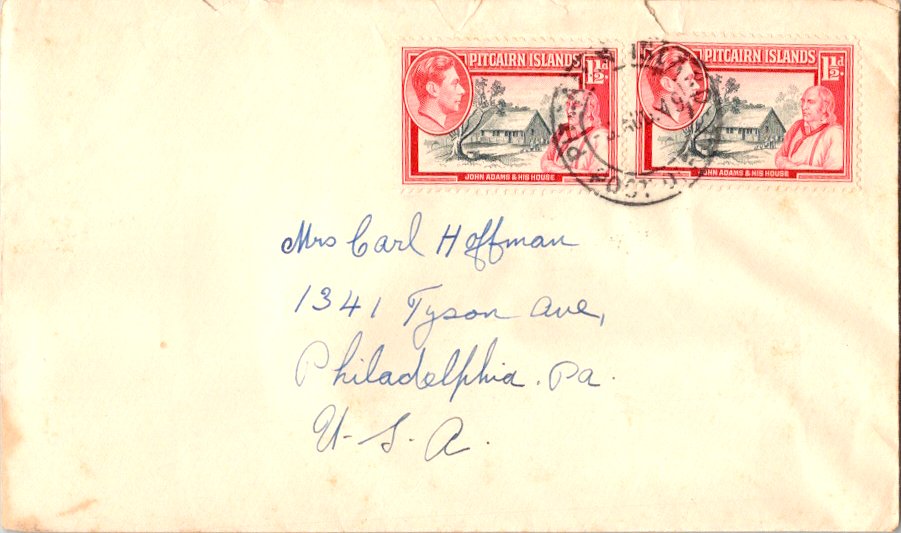 PITCAIRN ISLANDS
1½d.
JOHN ADAMS & HIS HOUSE
PITCAIRN ISLANDS
1½d.
JOHN ADAMS & HIS HOUSE
Mrs Carl Hoffman
1341 Tyson Ave,
Philadelphia. Pa.
U. S. A.